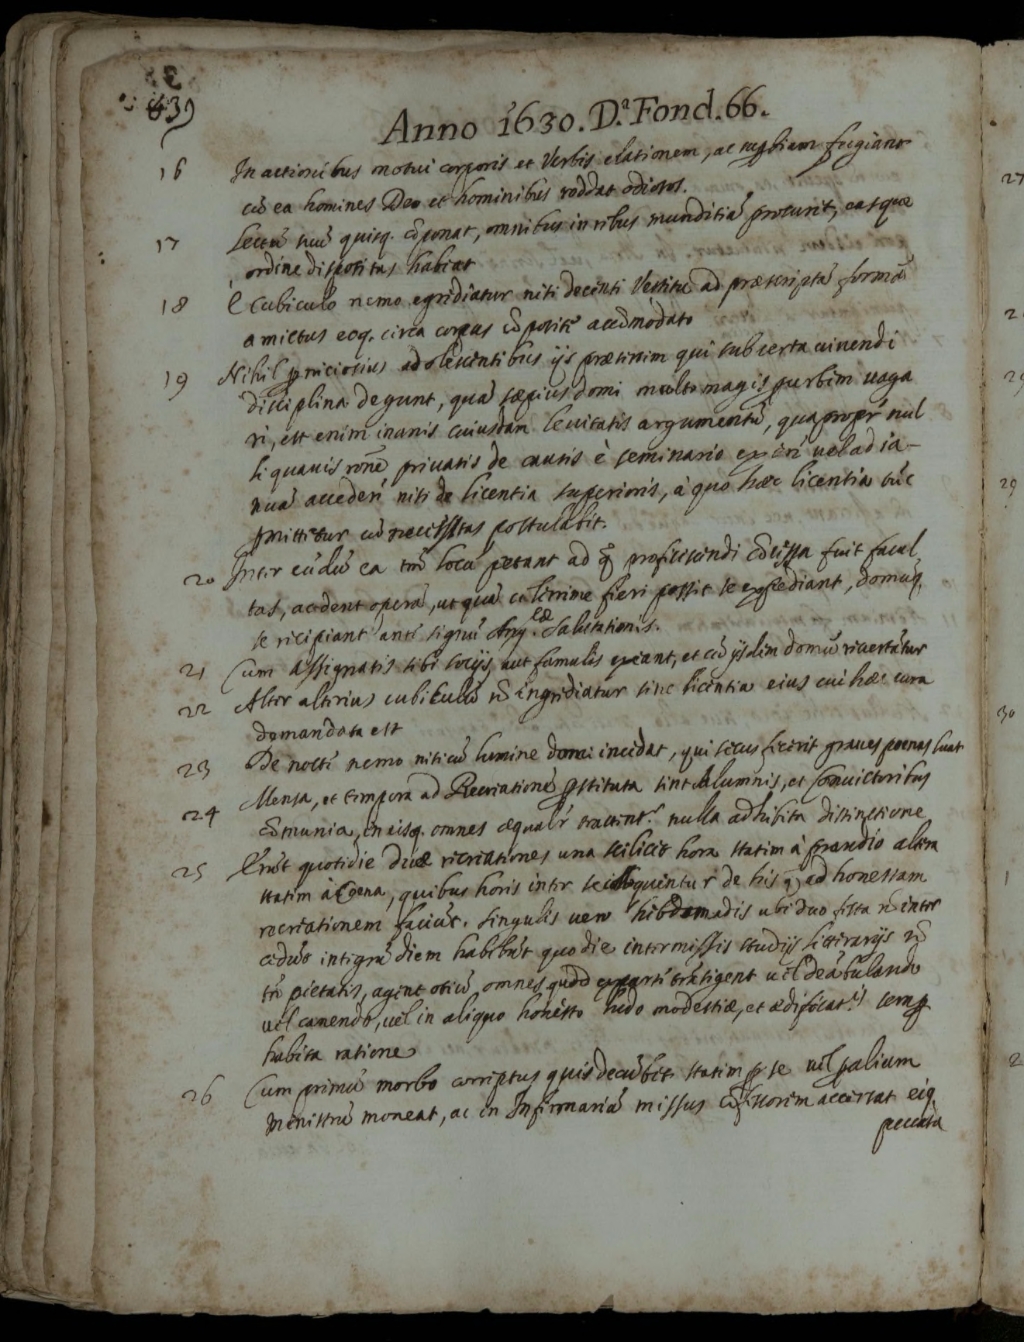 439
Anno 1630. D.ª Fond. 66.
16 In actionibus motui corporis et Verbis elationem, ac fugiant
cũ ea homines Deo et hominibus reddat odiosos.
17 Lectũ suũ quisq. cõponat, omnibus in rebus munditiã procuret, easque
ordine dispositas habeat
18 E Cubiculo nemo egrediatur nisi decenti Vestitu ad præscriptã formã
amictus eoq. circa corpus cõposite accõmodato
19 Nihil pniciosius adolescentibus ijs præsertim qui sub certa uiuendi
disciplina degunt, quã sæpius domi multo magis p urbem uaga
ri, est enim inanis cuiusdam leuitatis argumentũ, quapropr̃ nul
li quauis rõne priuatis de causis è seminario exire uel ad ia-
nuã accedere nisi de licentia superioris, à quo hæc licentia tũc
pmittetur cũ necessitas postulabit.
20 Inter eũdũ ea tm̃ locã petant ad q̃ proficiscendi cõcessa fuit facul
tas, ac dent operã, ut quã celerrime fieri possit se expediant, domũq.
se recipiant ante signũ Ang.cæ Salutationis.
21 Cum assignatis sibi socijs, aut famulis exeant, et cũ ijsdem domũ reuertãtur
22 Alter alterius cubiculũ nõ ingrediatur sine licentia eius cui hæc cura
demandata est
23 De nocte nemo nisi cũ lumine domi incedat, qui secus fecerit graues poenas luat
24 Mensa, et tempora ad Recreationẽ pstituta sint Alumnis, et Conuictoribus
cõmunia, in eisq. omnes æqualr̃ tractent.r nulla adhibita distinctione
25 Erũt quotidie duæ recreationes una scilicet hora statim à prandio altera
statim à Coena, quibus horis inter se loquentur de his q̃ ad honestam
recreationem faciũt. singulis uero hebdomadis ubi duo festa nõ inter
cedũt integrũ diem habebũt quo die intermissis studijs litterarijs nõ
tñ pietatis, agent otiũ, omnes quod exacti trãsigent uel deãbulando
uel canendo, uel in aliquo honesto ludo modestiæ, et ædificat.is semp
habita ratione
26 Cum primũ morbo correptus quis decũbit statim p se uel p alium
Ministrũ moneat, ac in Infirmariã missus cõfessorem accersat eiq.
peccata